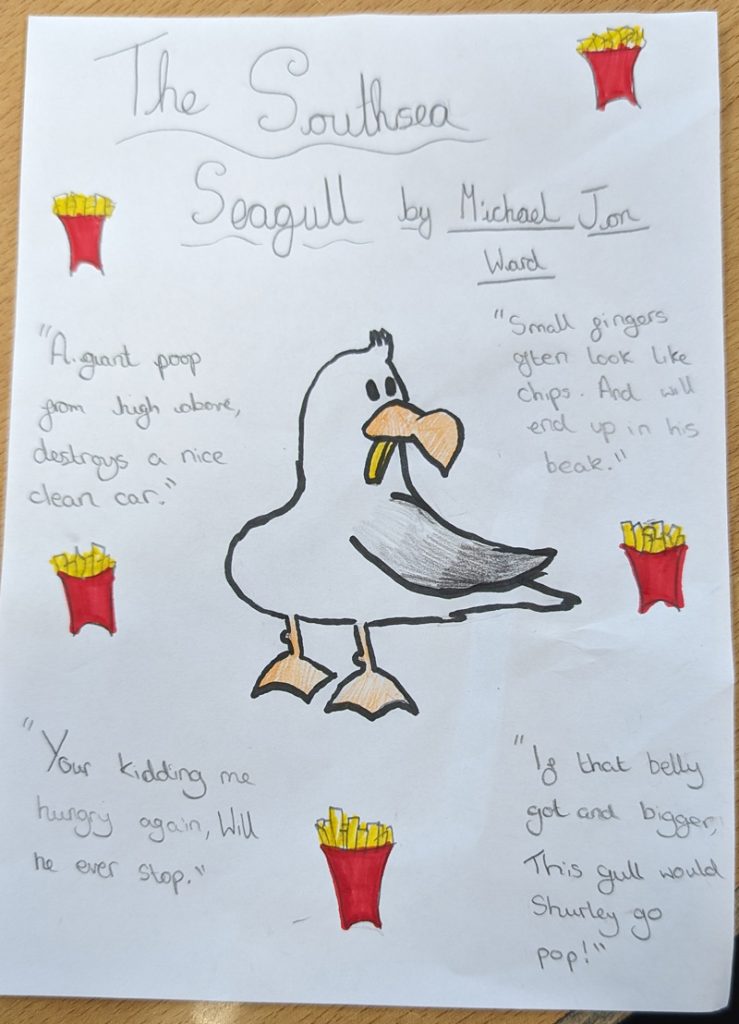 The Southsea
Seagull by Michael Jon
Ward
"A giant poop
from high above,
destroys a nice
clean car."
"Small gingers
often look like
chips. And will
end up in his
beak."
"Your kidding me
hungry again, Will
he ever stop."
"If that belly
got and bigger,
This gull would
Shurley go
pop!"